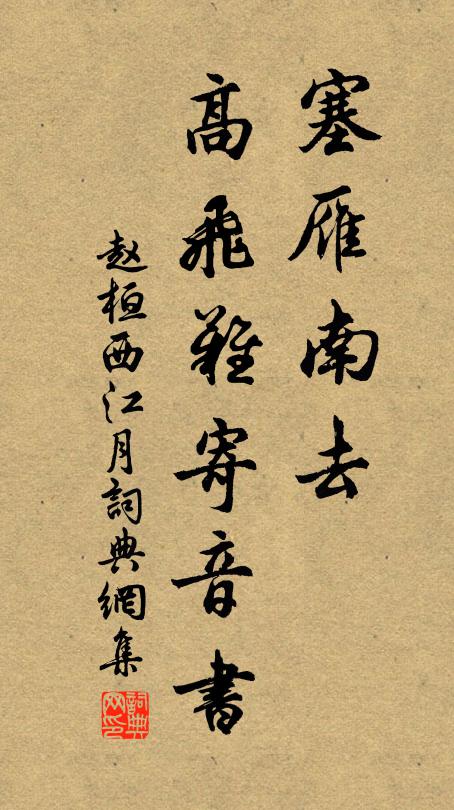 塞雁南去
高飛難寄音書
赵桓西江月詞典網集
詞典
网印